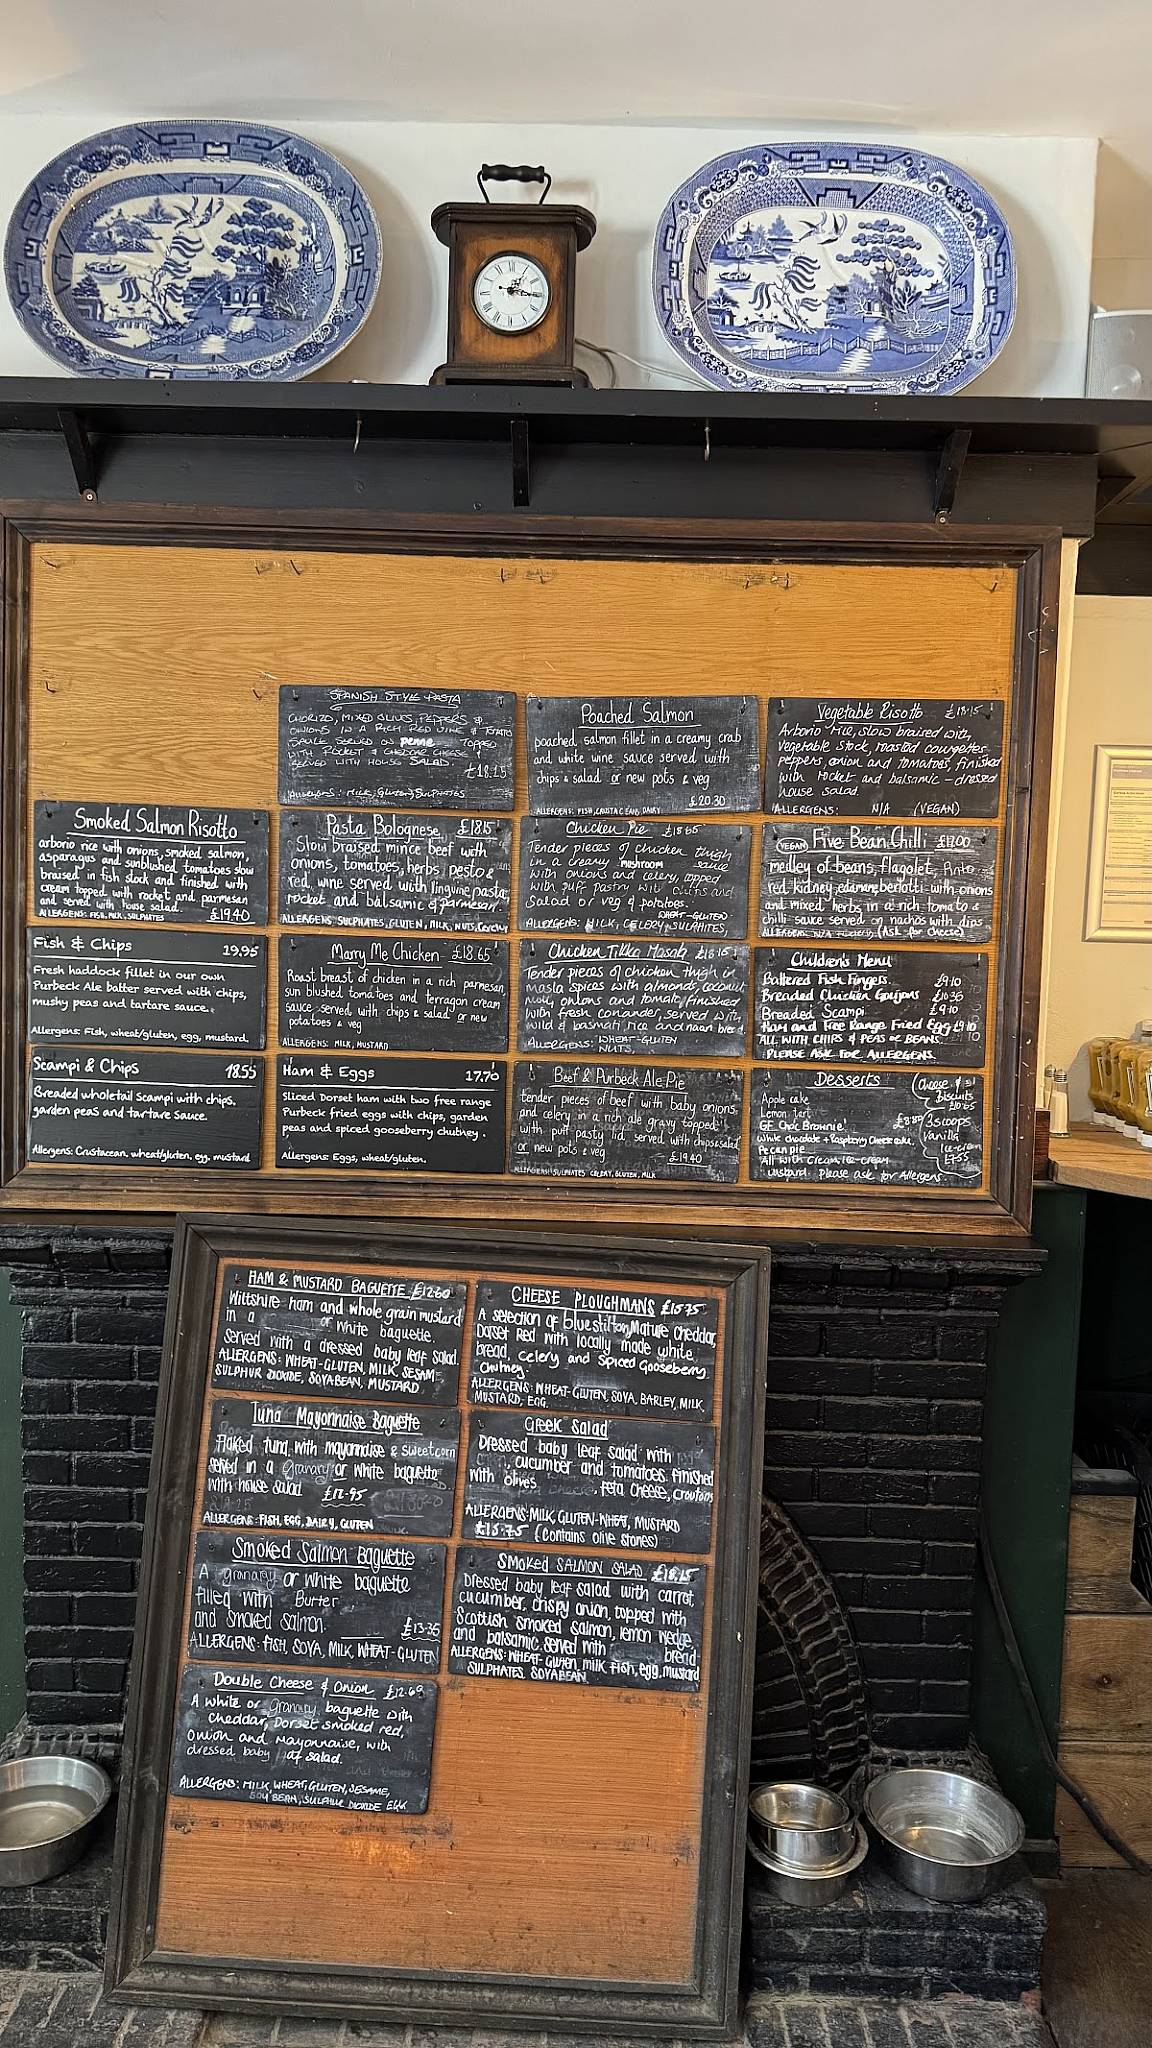 SPANISH STYLE PASTA
CHORIZO, MIXED OLIVES, PEPPERS &
ONIONS IN A RICH RED WINE & TOMATO
SAUCE SERVED ON penne TOPPED
WITH ROCKET & CHEDDAR CHEESE
SERVED WITH HOUSE SALAD.
£18.15
Allergens: MILK, Gluten, SULPHATES
Poached Salmon
poached salmon fillet in a creamy crab
and white wine sauce served with
chips & salad or new pots & veg
£20.30
ALLERGENS: FISH, CRUSTACEANS, DAIRY
Vegetable Risotto £18.15
Arborio rice, slow braised with
vegetable stock, roasted courgettes
peppers, onion and tomatoes, finished
with rocket and balsamic - dressed
house salad.
ALLERGENS: N/A (VEGAN)
Smoked Salmon Risotto
arborio rice with onions, smoked salmon,
asparagus and sunblushed tomatoes slow
braised in fish stock and finished with
cream topped with rocket and parmesan
and served with house salad.
ALLERGENS: FISH, MILK, SULPHATES £19.40
Pasta Bolognese £18.15
Slow braised mince beef with
onions, tomatoes, herbs, pesto &
red, wine served with linguine pasta,
rocket and balsamic & parmesan.
ALLERGENS SULPHATES, GLUTEN, MILK, NUTS,
Chicken Pie £18.65
Tender pieces of chicken thigh
in a creamy mushroom sauce
with onions and celery, topped
with puff pastry with chips and
Salad or veg & potatoes.
WHEAT-GLUTEN
ALLERGENS: MILK, CELERY, SULPHITES,
VEGAN Five Bean Chilli £17.00
medley of beans, flagolet, Pinto
red kidney, edamame, berlotti with onions
and mixed herbs in a rich tomato &
chilli sauce served on nachos with dips
(Ask for cheese)
Fish & Chips 19.95
Fresh haddock fillet in our own
Purbeck Ale batter served with chips,
mushy peas and tartare sauce.
Allergens: Fish, wheat/gluten, egg, mustard.
Marry Me Chicken £18.65
Roast breast of chicken in a rich parmesan,
sun blushed tomatoes and terragon cream
sauce served with chips & salad or new
potatoes & veg
ALLERGENS: MILK, MUSTARD
Chicken Tikka Masala £18.15
Tender pieces of chicken thigh in
masla spices with almonds, coconut
milk, onions and tomato, finished
with fresh coriander, served with
wild & basmati rice and naan bread.
ALLERGENS: WHEAT-GLUTEN
NUTS,
Children's Menu
Battered Fish Fingers £9.10
Breaded Chicken Goujons £10.36
Breaded Scampi £9.10
Ham and Free Range Fried Egg £9.10
ALL WITH CHIPS & PEAS OR BEANS.
PLEASE ASK FOR ALLERGENS.
Scampi & Chips 18.55
Breaded wholetail Scampi with chips,
garden peas and tartare sauce.
Allergens: Crustacean, wheat/gluten, eg, mustard
Ham & Eggs 17.70
Sliced Dorset ham with two free range
Purbeck fried eggs with chips, garden
peas and spiced gooseberry chutney.
Allergens: Eggs, wheat/gluten.
Beef & Purbeck Ale Pie
tender pieces of beef with baby onions
and celery in a rich ale gravy topped
with puff pasty lid served with chips & salad
or new pots & veg £19.40
ALLERGENS SULPHATES CELERY, GLUTEN, MILK
Desserts
Apple cake
Lemon tart
GF Choc Brownie £8.80
White chocolate & Raspberry Cheesecake
Pecan pie
All with Cream, Ice-cream
custard. Please ask for Allergens.
Cheese &
biscuits
£10.65
3 scoops
vanilla
Ice-cream
£7.55
HAM & MUSTARD BAGUETTE £12.60
Wiltshire ham and whole grain mustard
in a or white baguette.
served with a dressed baby leaf salad.
ALLERGENS: WHEAT-GLUTEN, MILK, SESAM
SULPHUR DIOXIDE, SOYABEAN, MUSTARD
CHEESE PLOUGHMANS £15.75
A selection of blue stilton, Mature Cheddar,
Dorset Red with locally made white
bread, celery and Spiced Gooseberry
Chutney.
ALLERGENS: WHEAT-GLUTEN, SOYA, BARLEY, MILK,
MUSTARD, EGG.
Tuna Mayonnaise Baguette
Flaked tuna with mayonnaise & sweetcorn
served in a granary or white baguette
with house salad £12.95
ALLERGENS: FISH, EGG, DAIRY, GLUTEN
Greek Salad
Dressed baby leaf salad with
, cucumber and tomatoes. Finished
with olives, feta cheese, croutons
ALLERGENS: MILK, GLUTEN-WHEAT, MUSTARD
£15.75 (Contains olive stones)
Smoked Salmon Baguette
A granary or white baguette
filled with Butter
and smoked salmon. £13.35
ALLERGENS: FISH, SOYA, MILK, WHEAT-GLUTEN
SMOKED SALMON SALAD £18.15
Dressed baby leaf salad with carrot,
cucumber, crispy onion, topped with
Scottish smoked salmon, lemon wedge,
and balsamic. served with bread
ALLERGENS: WHEAT-Gluten, milk, fish, egg, mustard
SULPHATES, SOYABEAN
Double Cheese & Onion £12.60
A white or granary baguette with
cheddar, Dorset smoked red,
onion and mayonnaise, with
dressed baby af salad.
ALLERGENS: MILK, WHEAT, GLUTEN, SESAME,
SOY BEAN, SULPHUR DIOXIDE EGG